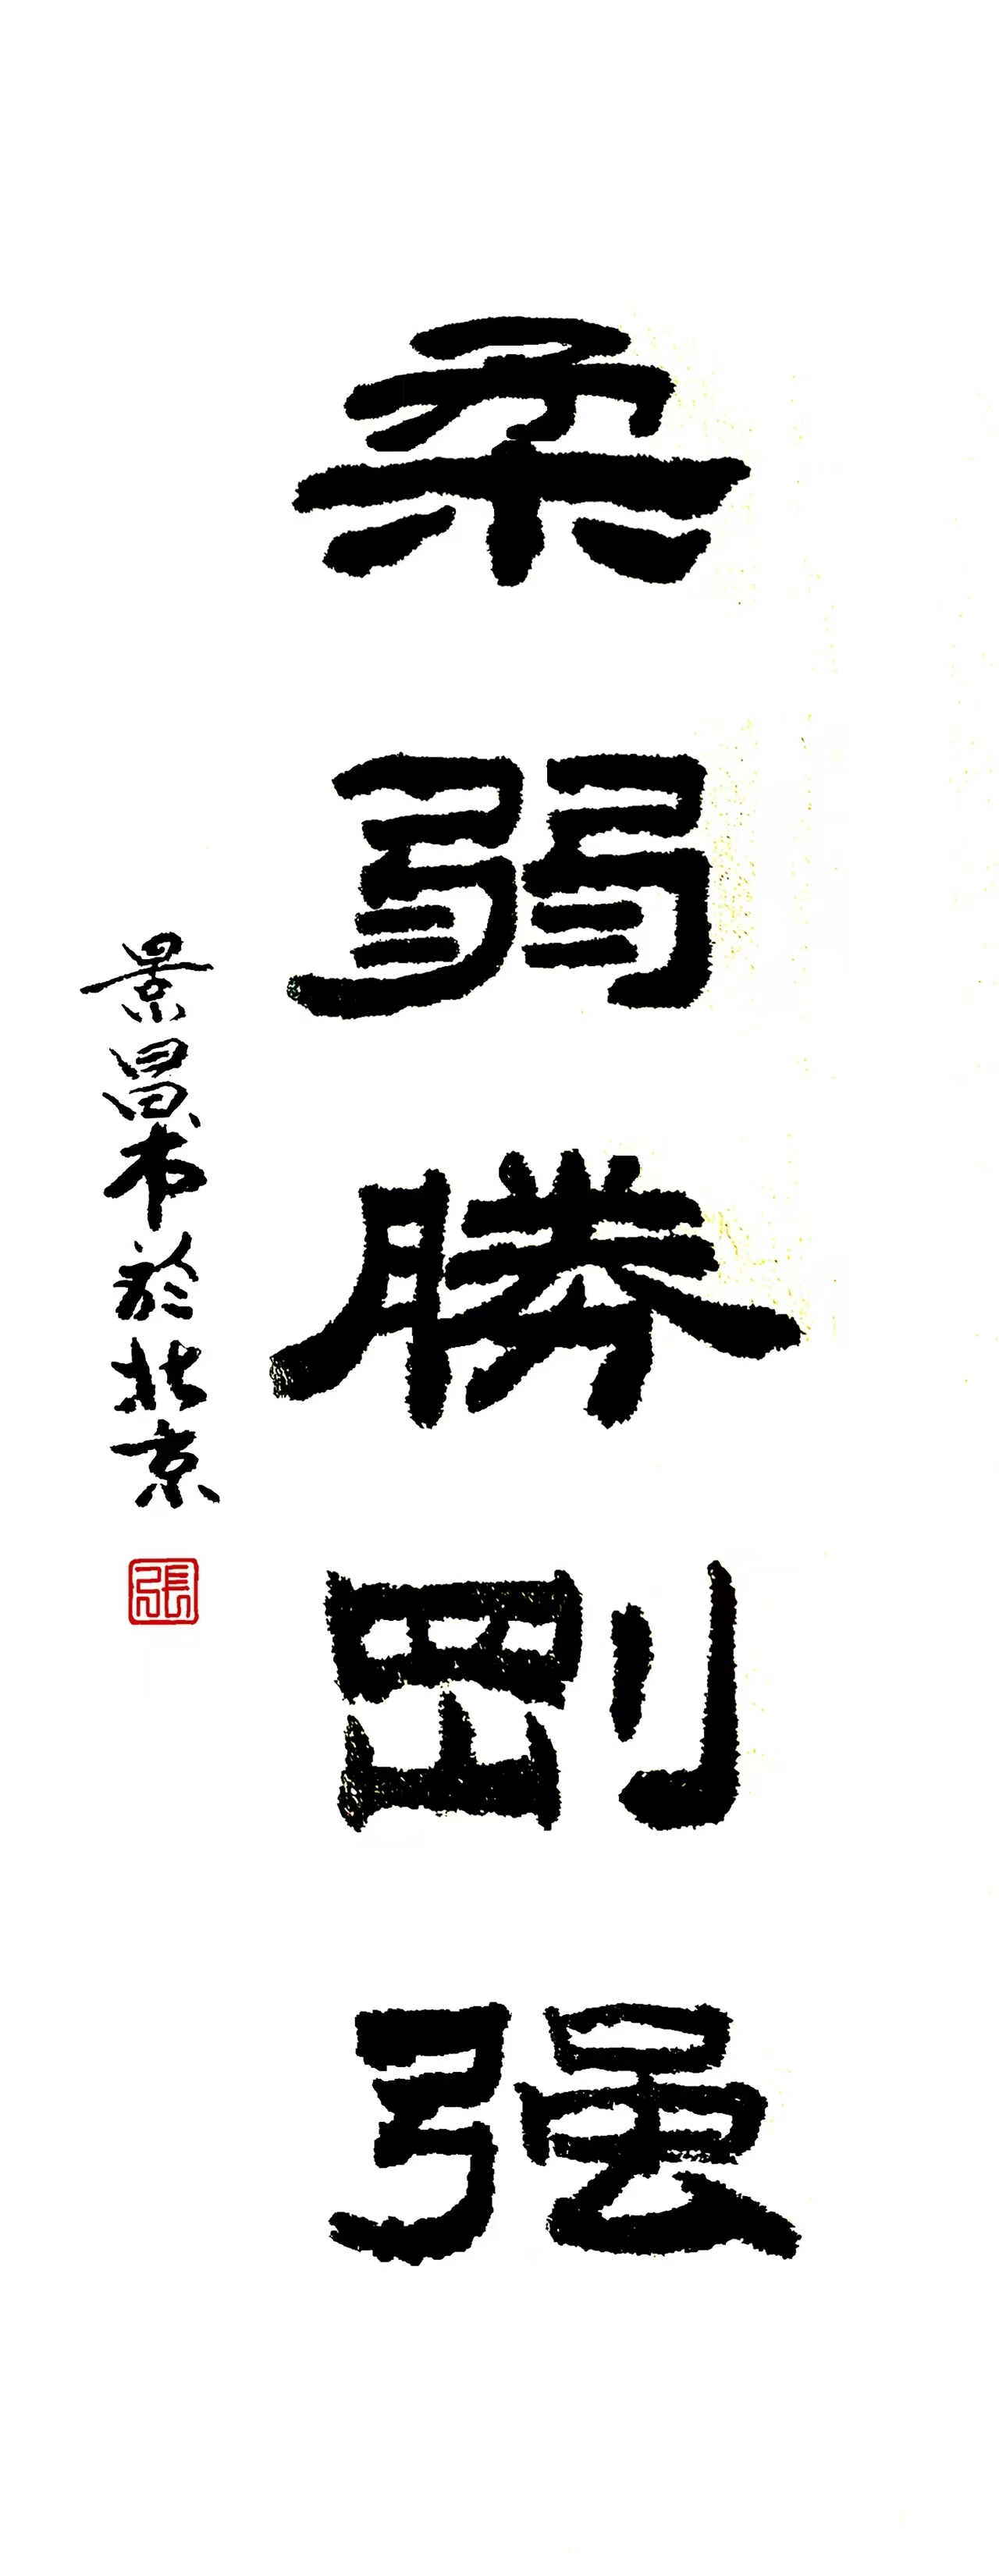 柔弱勝剛强
景昌书於北京
張